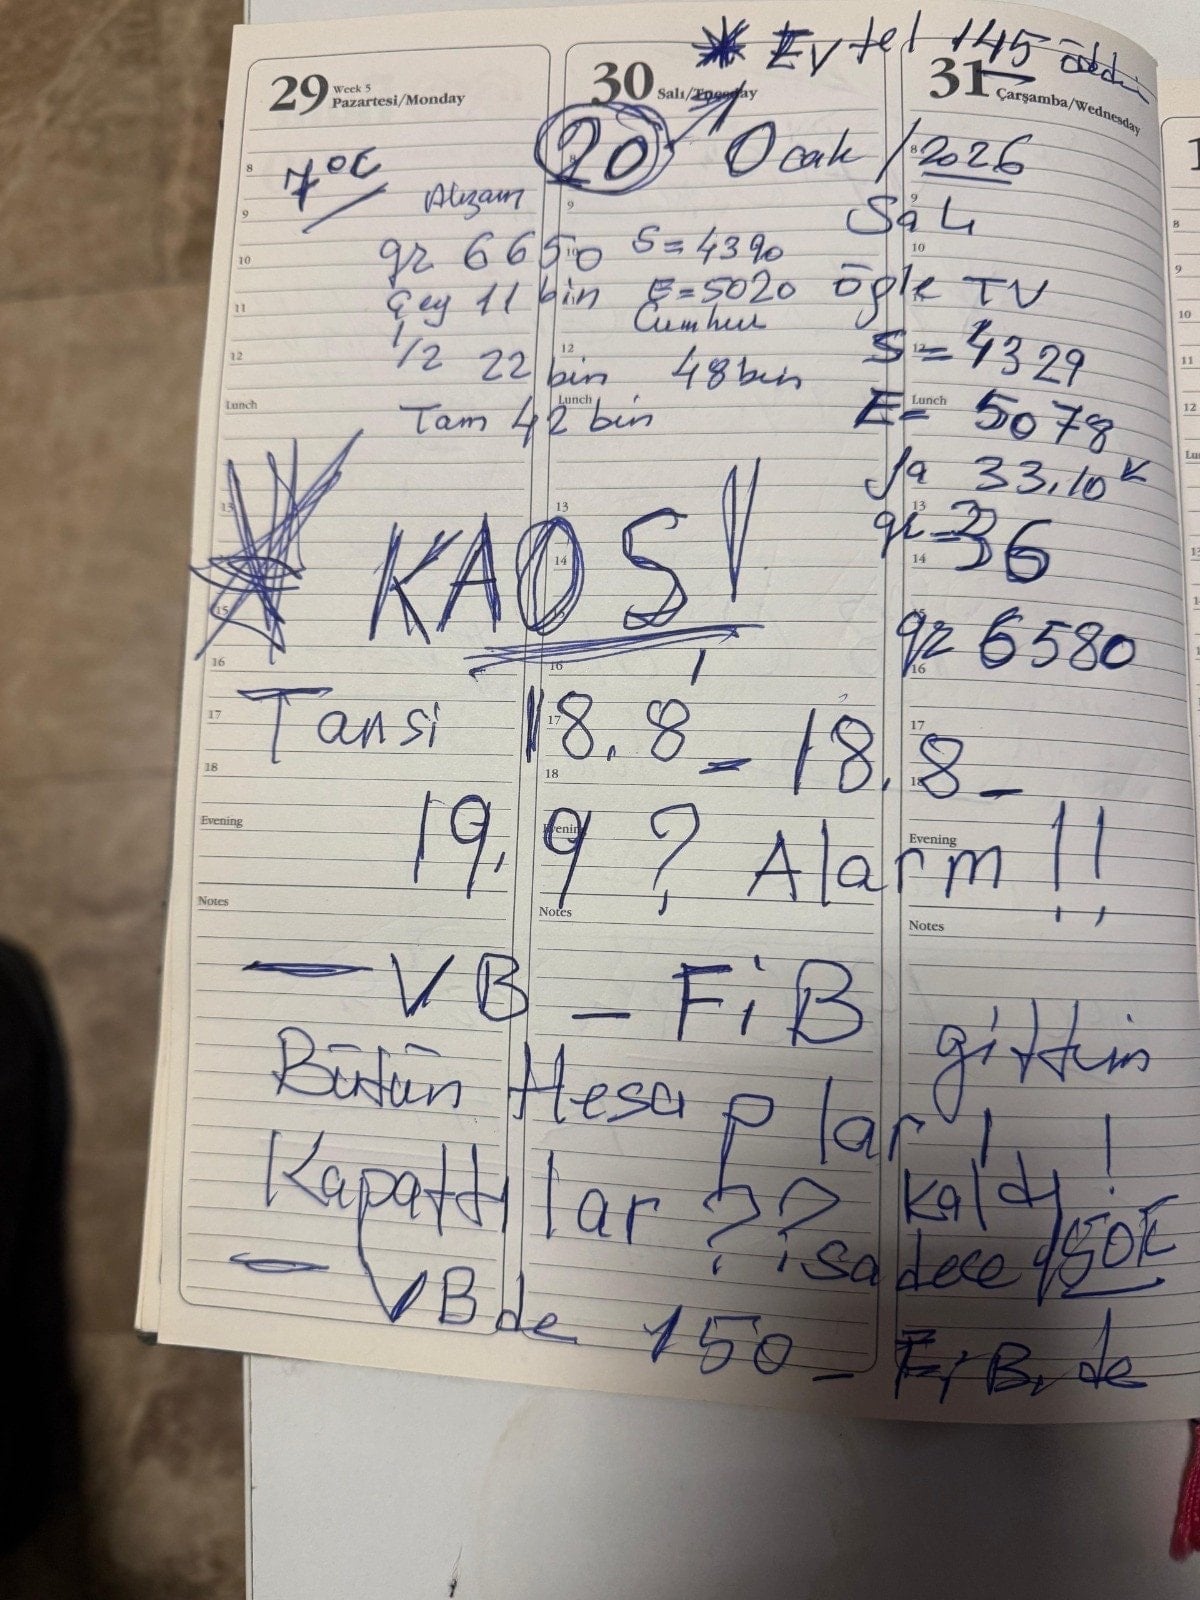 * Ev tel 145 ödedim
29 Week 5 Pazartesi/Monday
30 Salı/Tuesday
31 Çarşamba/Wednesday
7°C
20 Ocak / 2026
Akşam
Salı
gr 6650 S=4390
Çey 11 bin E=5020 öğle TV
Cumhur
1/2 22 bin 48 bin
S=4329
Tam 42 bin
E= 5078
33.10
36
* KAOS!
gr 6580
Tansi 18.8 - 18.8 -
19,9 ? Alarm !!
- VB - FiB
gittim
Bütün Hesaplar !
Kapattılar ?? kaldı!
sadece 150
- VB de 150 - FiB. de
8
9
10
11
12
Lunch
13
14
15
16
17
18
Evening
Notes